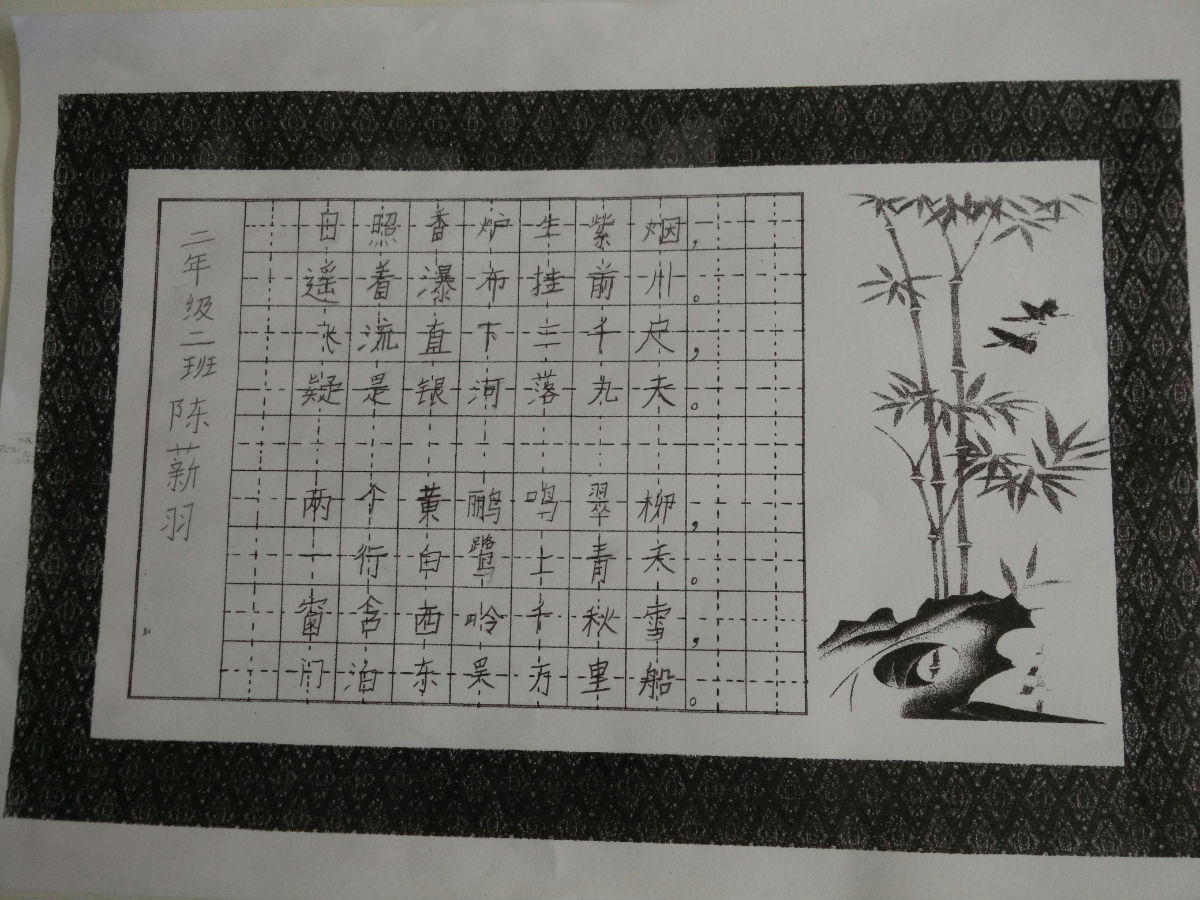 二年级二班陈薪羽
日照香炉生紫烟，
遥看瀑布挂前川。
飞流直下三千尺，
疑是银河落九天。
两个黄鹂鸣翠柳，
一行白鹭上青天。
窗含西岭千秋雪，
门泊东吴万里船。